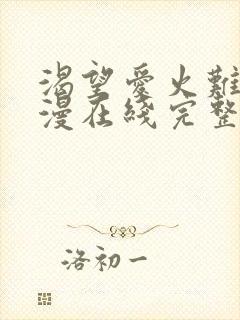 渴望愛火難
漫在綫完整
洛初一